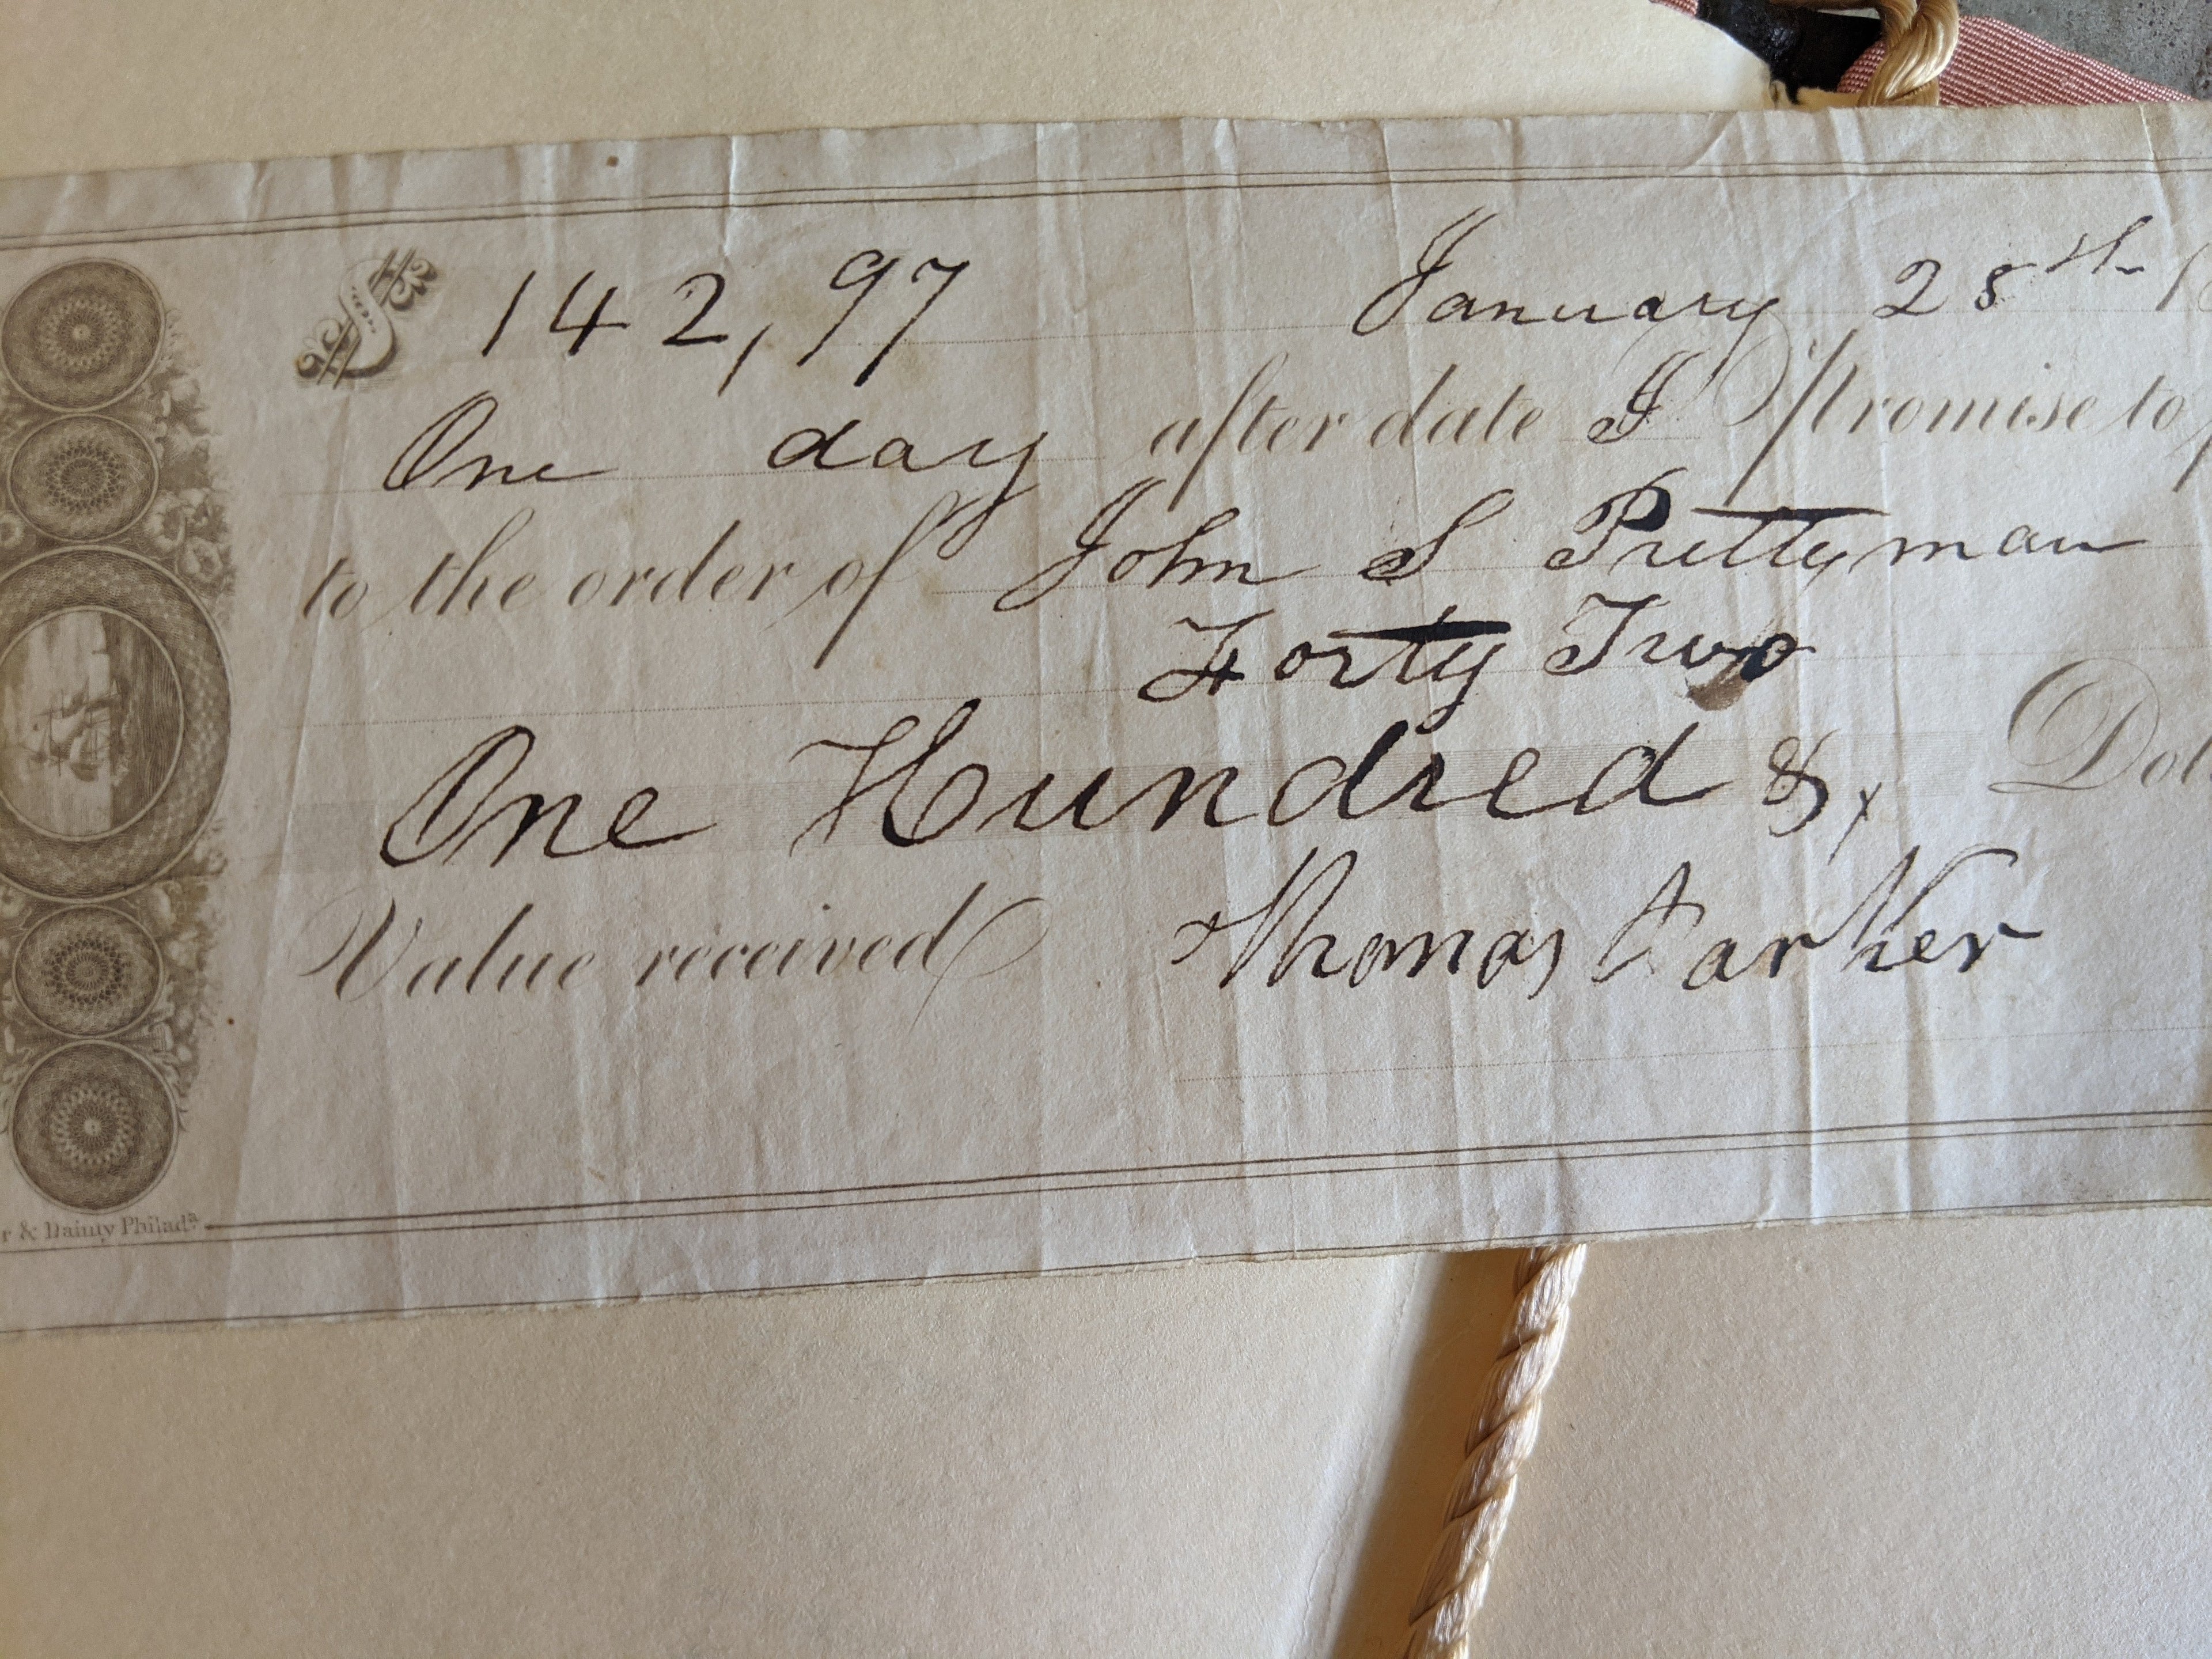 $ 142,97 January 28th 1
One day after date I Promise to
to the order of John S Prettyman
Forty Two
One Hundred & Dol
Value received Thomas Parker
r & Dainty Philada.